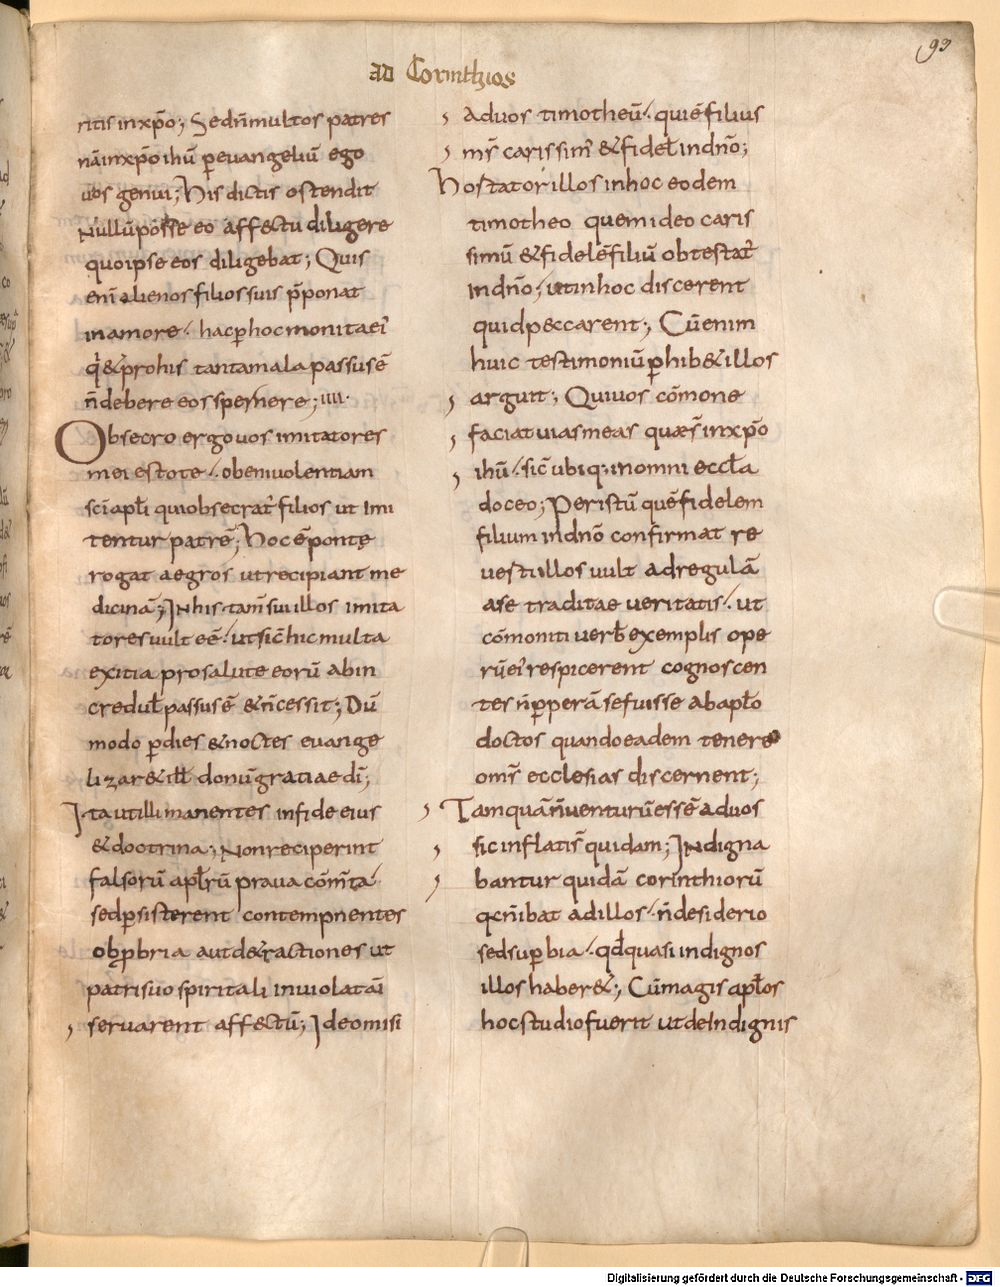 93
ad Corinthios
ritis inxp̄o; Sedn̄multos patres
nāinxp̄o ihū p̲euangeliū ego
uos genui; His dictis ostendit
Nullū posse eo affectu diligere
quo ipse eos diligebat; Quis
enī alienos filios suis p̄ponat
in amore; hac p̲hoc monita eī
q̓ & prohis tanta mala passus ē
n̄ debere eos spernere; IIII.
Obsecro ergo uos imitatores
mei estote; obeniuolentiam
sc̄i apłi qui obsecrat̓ filios ut imi
tentur patrē; Hoc ē sponte
rogat aegros ut recipiant me
dicinā; In his tam̄ sui illos imita
tores uult eē; ut sic̄ hic multa
exitia pro salute eorū abin
creduł passus ē & n̄ cessit; Dū
modo p̲ dies & noctes euange
lizar& ill̄ donū gratiae dī;
Ita ut illi manentes infide eius
& doctrina; Non reciperint
falsorū apłrū praua cōm̄ta
sed p̲sisterent contempnentes
obp̲bria aut de&ractiones ut
patri suo spiritali inuiolatā
seruarent affectū; Ideo misi
ad uos timotheū; qui ē filius
m̄s carissim̄ & fideł indn̄o;
Hostator illos in hoc eodem
timotheo quem ideo caris
simū & fidelē filiū obtestat̓
indn̄o; ut in hoc discerent
quid peccarent; Cū enim
huic testimoniū p̲hib& illos
arguit; Qui uos cōmone
faciat uias meas quaes̄ inxp̄o
ihū; sic̄ ubiq; in omni eccła
doceo; Per istū quē fidelem
filium indn̄o confirmat re
uesti illos uult ad regulā
a se traditae ueritatis; ut
cōmoniti uerb̄ exemplis ope
rū eī respicerent cognoscen
tes n̄ p̲perā se fuisse ab apło
doctos quando eadem tenere
om̄s ecclesias discernent;
Tam quā n̄ uenturū essē ad uos
sic inflatis̄ quidam; Indigna
bantur quidā corinthiorū
qc̄n̄ ibat ad illos; n̄ desiderio
sed sup̲bia; qd̄ quasi indignos
illos haber&; Cū magis apłos
hoc studio fuerit ut de indignis
Digitalisierung gefördert durch die Deutsche Forschungsgemeinschaft - DFG